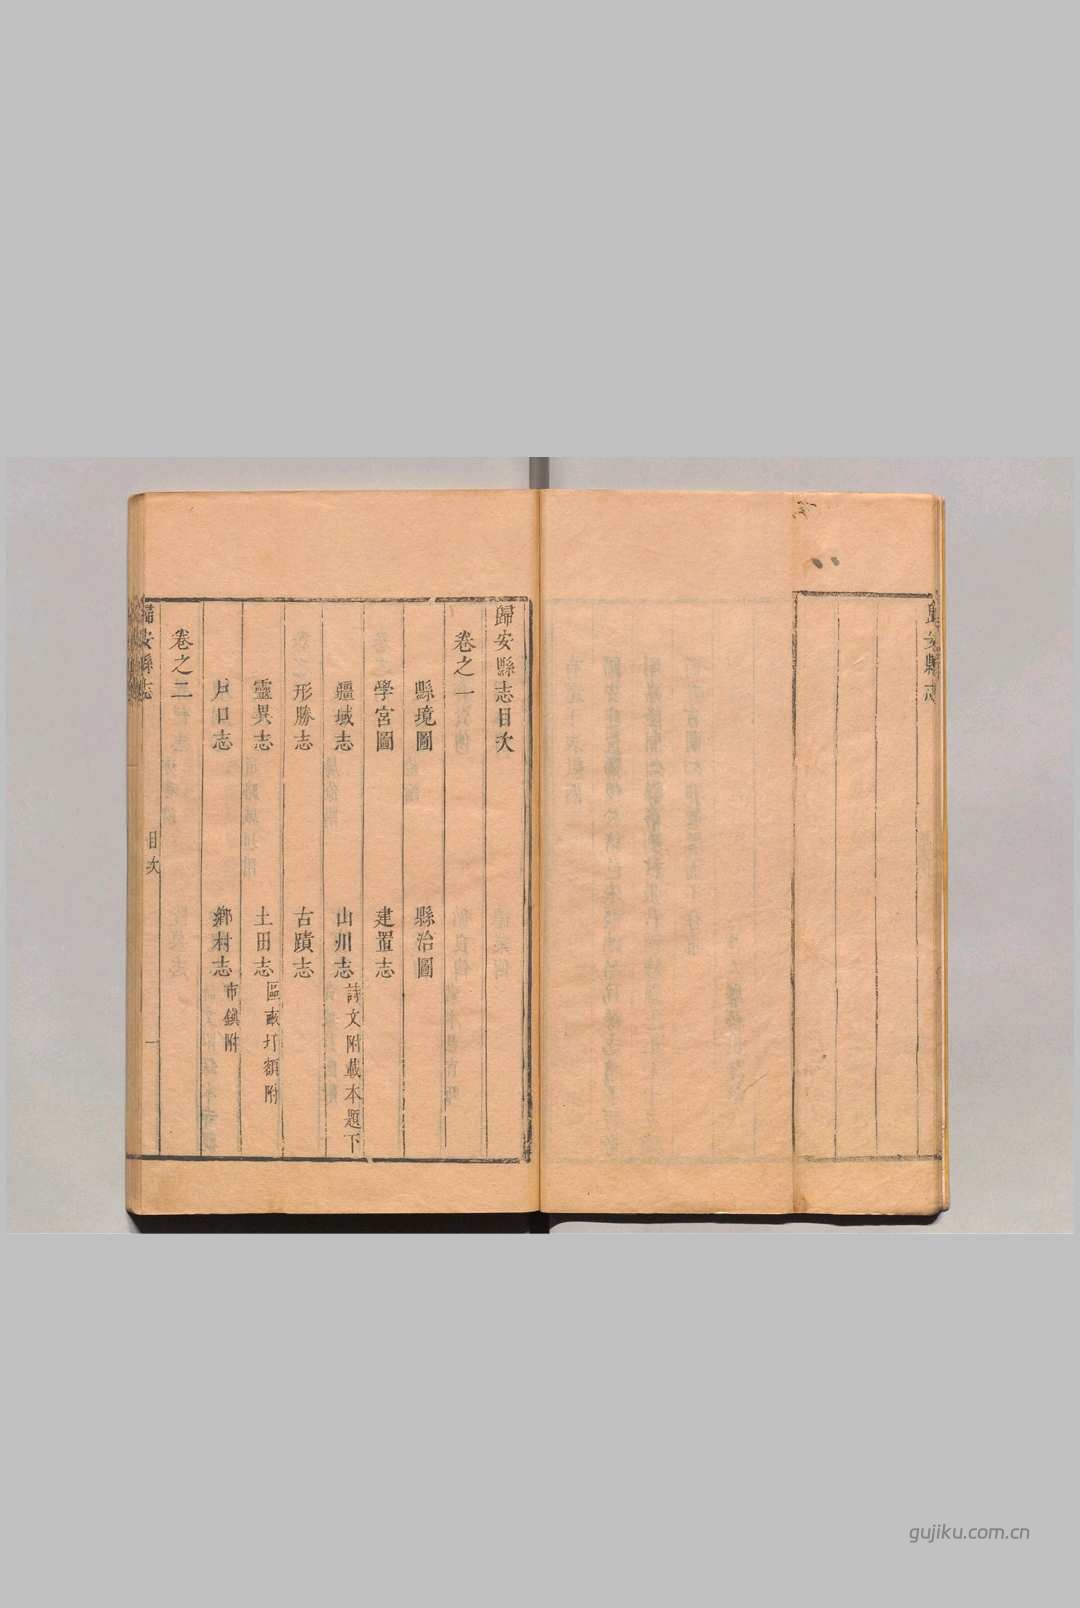 歸安縣志
歸安縣志目次
卷之一
縣境圖 縣治圖
學宮圖 建置志
疆域志 山川志 詩文附載本題下
形勝志 古蹟志
靈異志 土田志 區畝圩額附
戶口志 鄉村志 市鎮附
卷之二
歸安縣志 目次 一
gujiku.com.cn